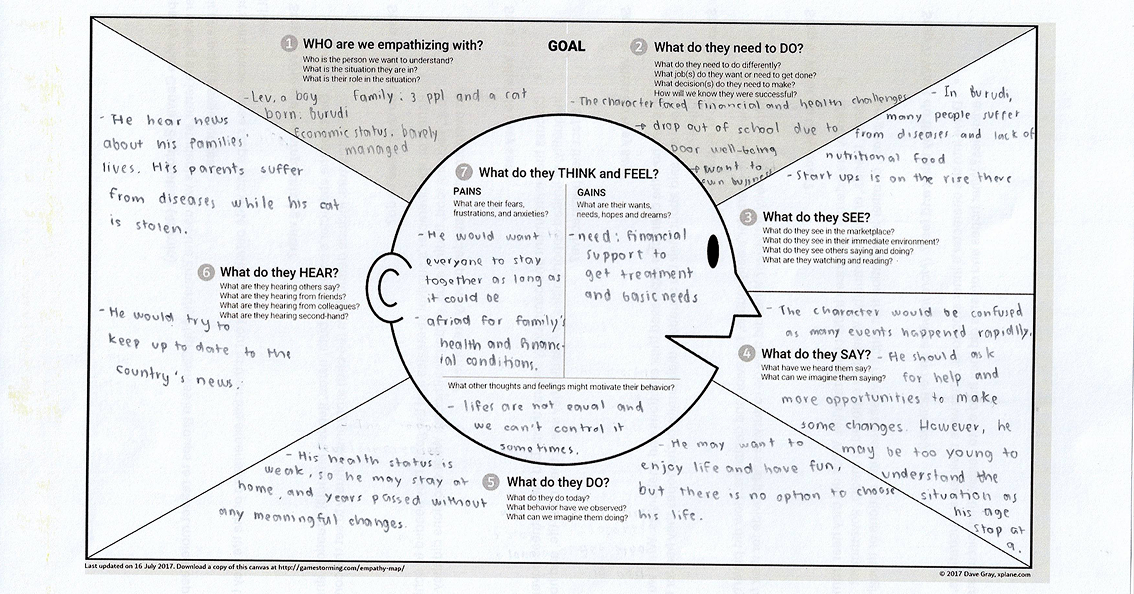 GOAL
1 WHO are we empathizing with?
Who is the person we want to understand?
What is the situation they are in?
What is their role in the situation?
- Lev, a boy Family: 3 ppl and a cat
born. Burudi
Economic status. barely
managed
2 What do they need to DO?
What do they need to do differently?
What job(s) do they want or need to get done?
What decision(s) do they need to make?
How will we know they were successful?
- The character faced financial and health challenges
→ drop out of school due to
poor well-being
→ want to
own
- In Burudi,
many people suffer
from diseases and lack of
nutritional food
- Start ups is on the rise there
3 What do they SEE?
What do they see in the marketplace?
What do they see in their immediate environment?
What do they see others saying and doing?
What are they watching and reading?
- The character would be confused
as many events happened rapidly.
4 What do they SAY?
What have we heard them say?
What can we imagine them saying?
- He should ask
for help and
more opportunities to make
some changes. However, he
may be too young to
understand the
situation as
his age
stop at
9.
5 What do they DO?
What do they do today?
What behavior have we observed?
What can we imagine them doing?
- His health status is
weak, so he may stay at
home, and years passed without
any meaningful changes.
- He may want to
enjoy life and have fun,
but there is no option to choose
his life.
- He hear news
about his families'
lives. His parents suffer
from diseases while his cat
is stolen.
6 What do they HEAR?
What are they hearing others say?
What are they hearing from friends?
What are they hearing from colleagues?
What are they hearing second-hand?
- He would try to
keep up to date to the
country's news.
7 What do they THINK and FEEL?
PAINS
What are their fears,
frustrations, and anxieties?
- He would want
everyone to stay
together as long as
it could be
- afriad for family's
health and financ-
ial conditions.
GAINS
What are their wants,
needs, hopes and dreams?
- need: financial
support to
get treatment
and basic needs
What other thoughts and feelings might motivate their behavior?
- lifes are not equal and
we can't control it
sometimes.
Last updated on 16 July 2017. Download a copy of this canvas at http://gamestorming.com/empathy-map/
© 2017 Dave Gray, xplane.com